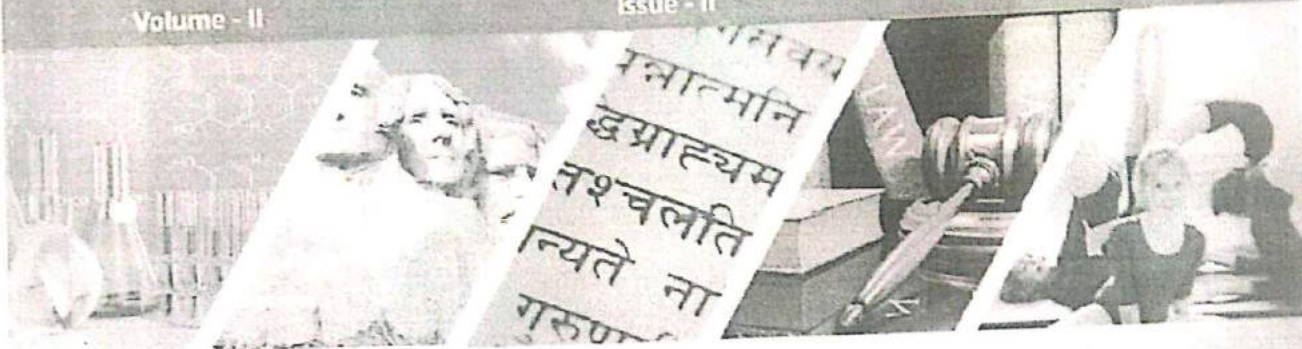 Volume - II
Issue - II
न्नात्मनि
द्धग्राह्यम
तश्चलति
न्यते ना
LAW